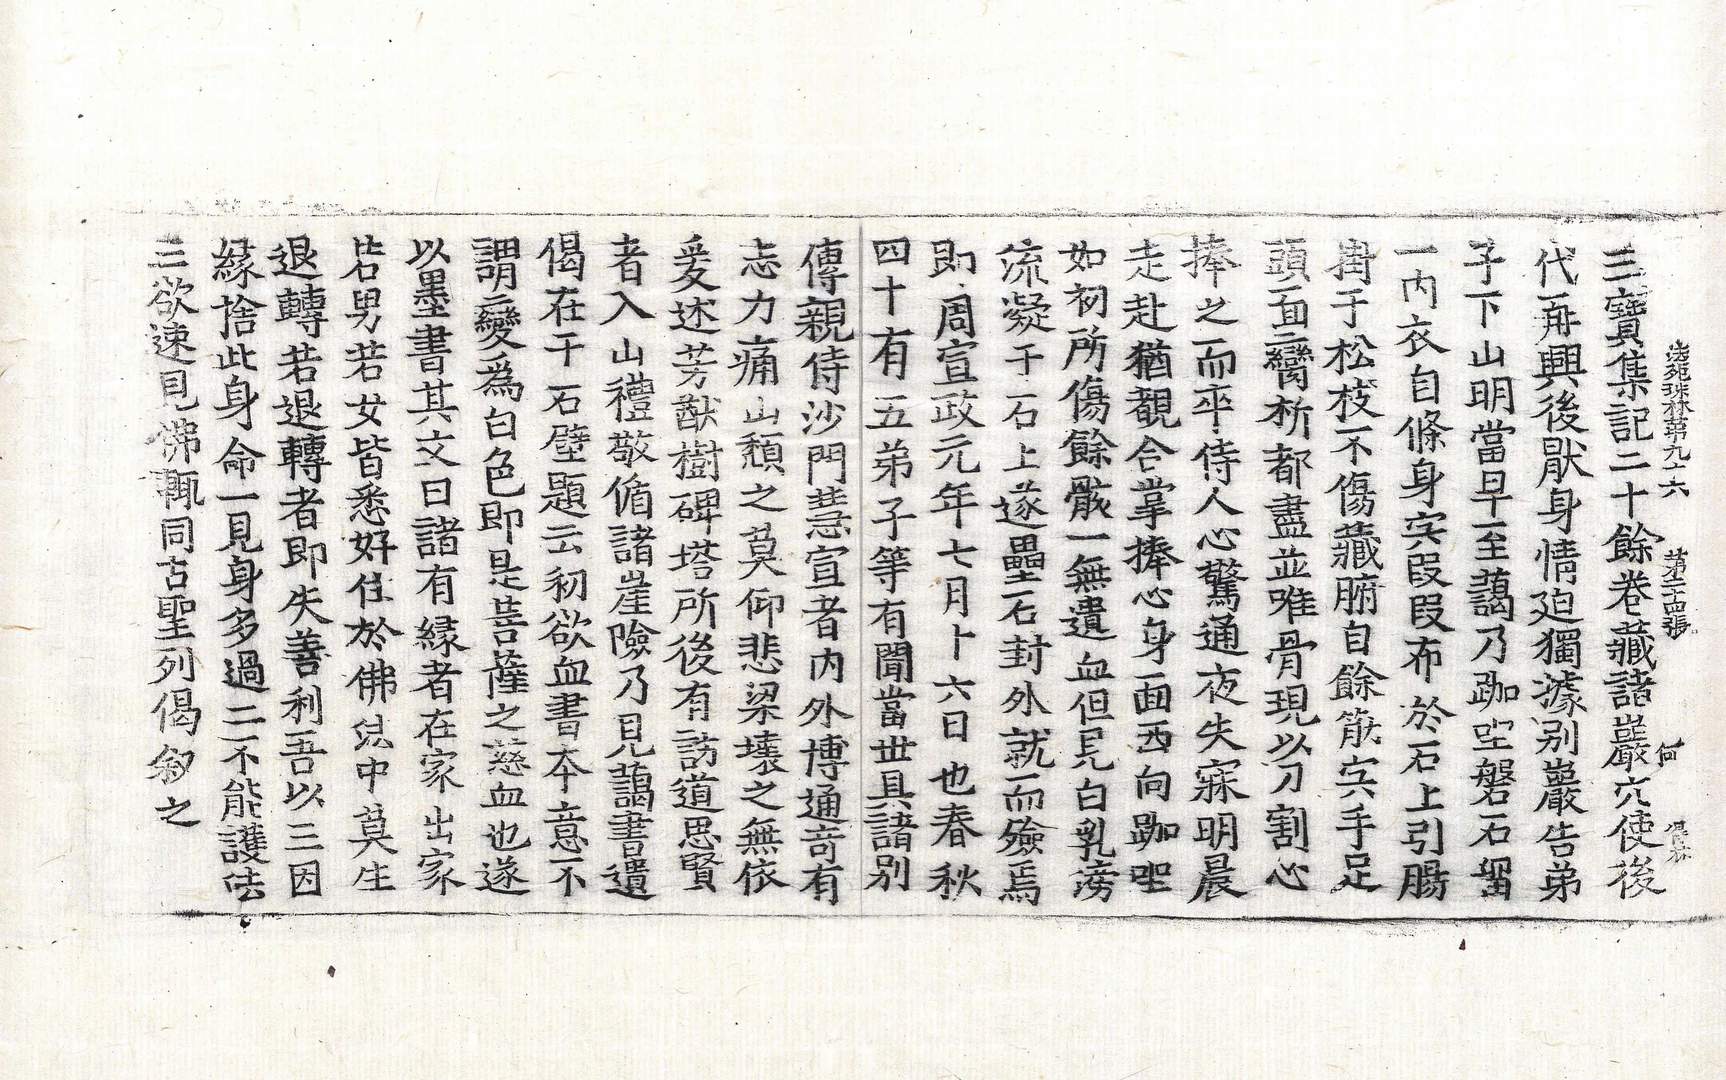 法苑珠林第九十六　第二十四張　何
三寶集記二十餘卷藏諸巖穴使後
代再興後厭身情迫獨據別巖告弟
子下山明當早至藹乃跏坐磐石留
一內衣自條身宍段段布於石上引腸
掛于松枝不傷藏腑自餘筋宍手足
頭面臠析都盡並唯骨現以刀割心
捧之而卒侍人心驚通夜失寐明晨
走赴猶覩合掌捧心身面西向跏坐
如初所傷餘骸一無遺血但見白乳滂
流凝于石上遂壘石封外就而殮焉
即周宣政元年七月十六日也春秋
四十有五弟子等有聞當世具諸別
傳親侍沙門慧宣者內外博通奇有
志力痛山頹之莫仰悲梁壞之無依
爰述芳猷樹碑塔所後有訪道思賢
者入山禮敬循諸崖險乃見藹書遺
偈在于石壁題云初欲血書本意不
謂變爲白色即是菩薩之慈血也遂
以墨書其文曰諸有緣者在家出家
若男若女皆悉好住於佛法中莫生
退轉若退轉者即失善利吾以三因
緣捨此身命一見身多過二不能護法
三欲速見佛輒同古聖列偈叙之